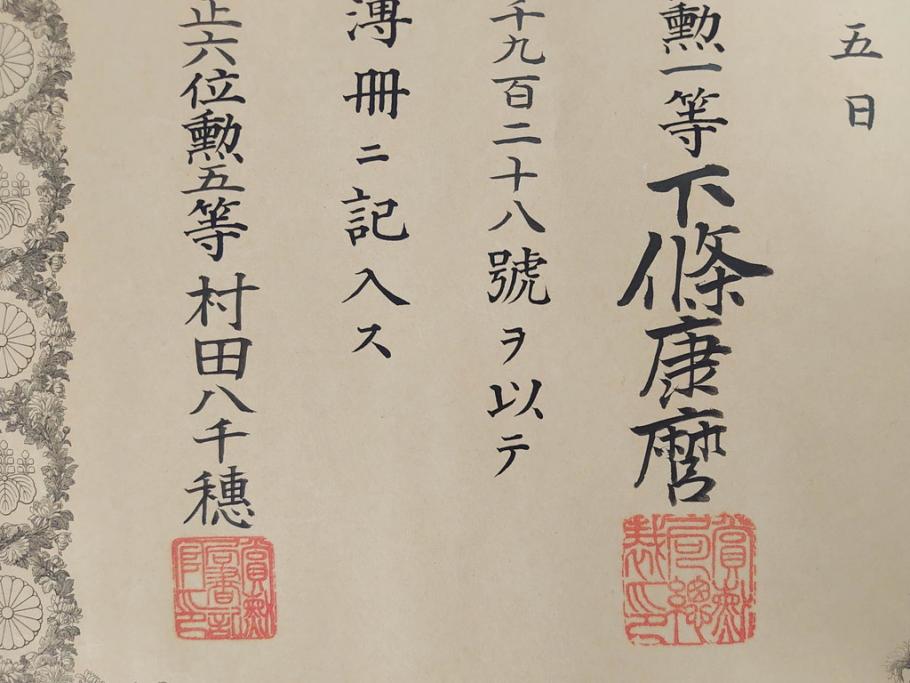 五日
勲一等下條康麿
千九百二十八號ヲ以テ
簿冊ニ記入ス
正六位勲五等村田八千穗
賞勲局總裁印
賞勲局書記官印